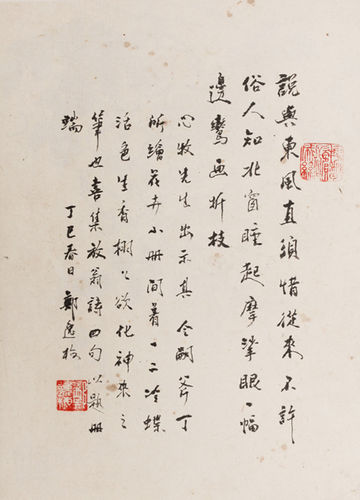 說與東風直須惜從來不許
俗人知北窗睡起摩挲眼一幅
邊鸞畫折枝
心牧先生出示其令嗣斧丁
所繪花卉小冊間著一二冷蝶
活色生香栩〻欲化神來之
筆也喜集放翁詩四句以題冊
端
丁巳春日鄭逸梅